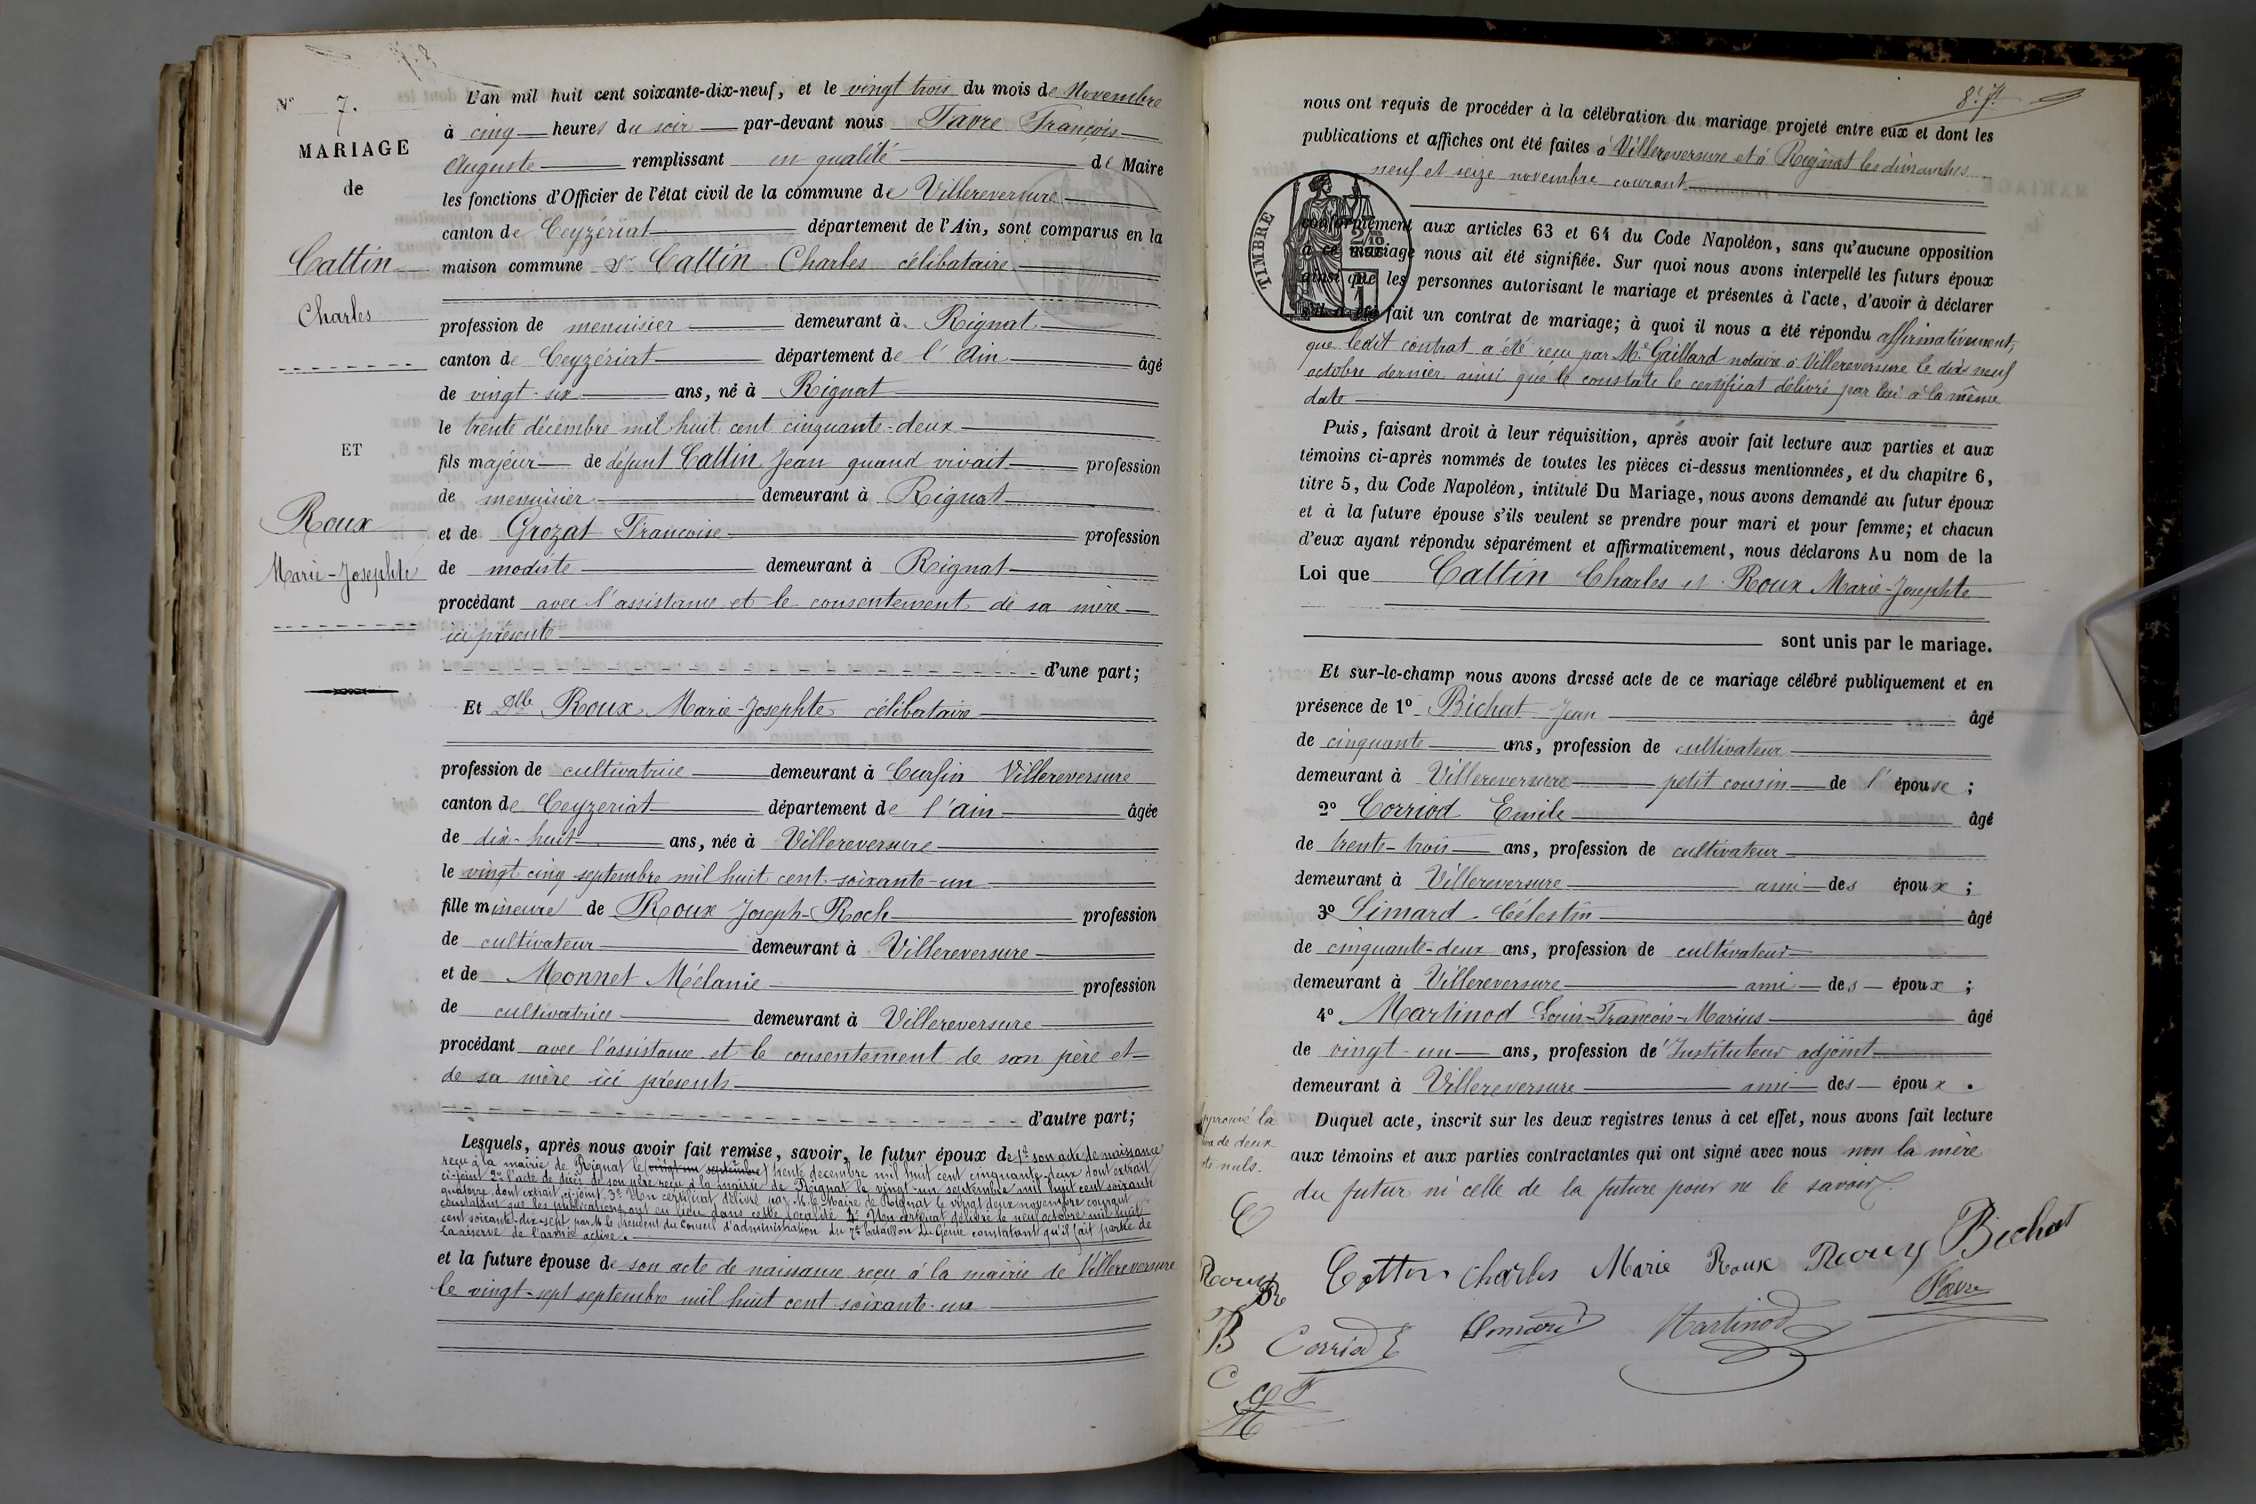 N° 7.
MARIAGE
de
Cattin
Charles
ET
Roux
Marie-Josephte
L'an mil huit cent soixante-dix-neuf, et le vingt trois du mois de Novembre
à cinq heures du soir par-devant nous Favre François
Auguste remplissant en qualité de Maire
les fonctions d'Officier de l'état civil de la commune de Villereversure
canton de Ceyzériat département de l'Ain, sont comparus en la
maison commune Sr Cattin Charles célibataire
profession de menuisier demeurant à Rignat
canton de Ceyzériat département de l'Ain âgé
de vingt-six ans, né à Rignat
le trente décembre mil huit cent cinquante-deux
fils majeur de défunt Cattin Jean quand vivait profession
de menuisier demeurant à Rignat
et de Grozat Françoise profession
de modiste demeurant à Rignat
procédant avec l'assistance et le consentement de sa mère
ici présente
d'une part;
Et Dlle Roux Marie-Josephte célibataire
profession de cultivatrice demeurant à Cursin Villereversure
canton de Ceyzeriat département de l'Ain âgée
de dix-huit ans, née à Villereversure
le vingt cinq septembre mil huit cent soixante-un
fille mineure de Roux Joseph-Roch profession
de cultivateur demeurant à Villereversure
et de Monnet Mélanie profession
de cultivatrice demeurant à Villereversure
procédant avec l'assistance et le consentement de son père et
de sa mère ici présents
d'autre part;
Lesquels, après nous avoir fait remise, savoir, le futur époux de 1° son acte de naissance
reçu à la mairie de Rignat le (vingt-un septembre) trente décembre mil huit cent cinquante-deux dont extrait
ci-joint 2° l'acte de décès de son père reçu à la mairie de Rignat le vingt-un septembre mil huit cent soixante
quatorze dont extrait ci-joint 3° Un certificat délivré par M. le Maire de Rignat le vingt deux novembre courant
constatant que les publications ont eu lieu dans cette localité 4° Un certificat délivré le neuf octobre mil huit
cent soixante-dix-sept par M. le Président du Conseil d'administration du 7e bataillon du Génie constatant qu'il fait partie de
la réserve de l'armée active.
et la future épouse de son acte de naissance reçu à la mairie de Villereversure
le vingt-sept septembre mil huit cent soixante-un
nous ont requis de procéder à la célébration du mariage projeté entre eux et dont les
publications et affiches ont été faites à Villereversure et à Rignat les dimanches
neuf et seize novembre courant
TIMBRE
conformément aux articles 63 et 64 du Code Napoléon, sans qu'aucune opposition
à ce mariage nous ait été signifiée. Sur quoi nous avons interpellé les futurs époux
ainsi que les personnes autorisant le mariage et présentes à l'acte, d'avoir à déclarer
s'il a été fait un contrat de mariage; à quoi il nous a été répondu affirmativement,
que ledit contrat a été reçu par Me Gaillard notaire à Villereversure le dix neuf
octobre dernier ainsi que le constate le certificat délivré par lui à la même
date
Puis, faisant droit à leur réquisition, après avoir fait lecture aux parties et aux
témoins ci-après nommés de toutes les pièces ci-dessus mentionnées, et du chapitre 6,
titre 5, du Code Napoléon, intitulé Du Mariage, nous avons demandé au futur époux
et à la future épouse s'ils veulent se prendre pour mari et pour femme; et chacun
d'eux ayant répondu séparément et affirmativement, nous déclarons Au nom de la
Loi que Cattin Charles et Roux Marie-Josephte
sont unis par le mariage.
Et sur-le-champ nous avons dressé acte de ce mariage célébré publiquement et en
présence de 1° Bichat Jean âgé
de cinquante ans, profession de cultivateur
demeurant à Villereversure petit cousin de l'épouse;
2° Corriod Emile âgé
de trente-trois ans, profession de cultivateur
demeurant à Villereversure ami des époux;
3° Simard Célestin âgé
de cinquante-deux ans, profession de cultivateur
demeurant à Villereversure ami des époux;
4° Martinod Louis-François-Marius âgé
de vingt-un ans, profession de Instituteur adjoint
demeurant à Villereversure ami des époux.
Duquel acte, inscrit sur les deux registres tenus à cet effet, nous avons fait lecture
aux témoins et aux parties contractantes qui ont signé avec nous non la mère
du futur ni celle de la future pour ne le savoir.
pprouvé la
de deux
nuls.
Cattin Charles Marie Roux Roux Bichat
Favre
Corriod E Simard Martinod
C
Roux
B
C
M